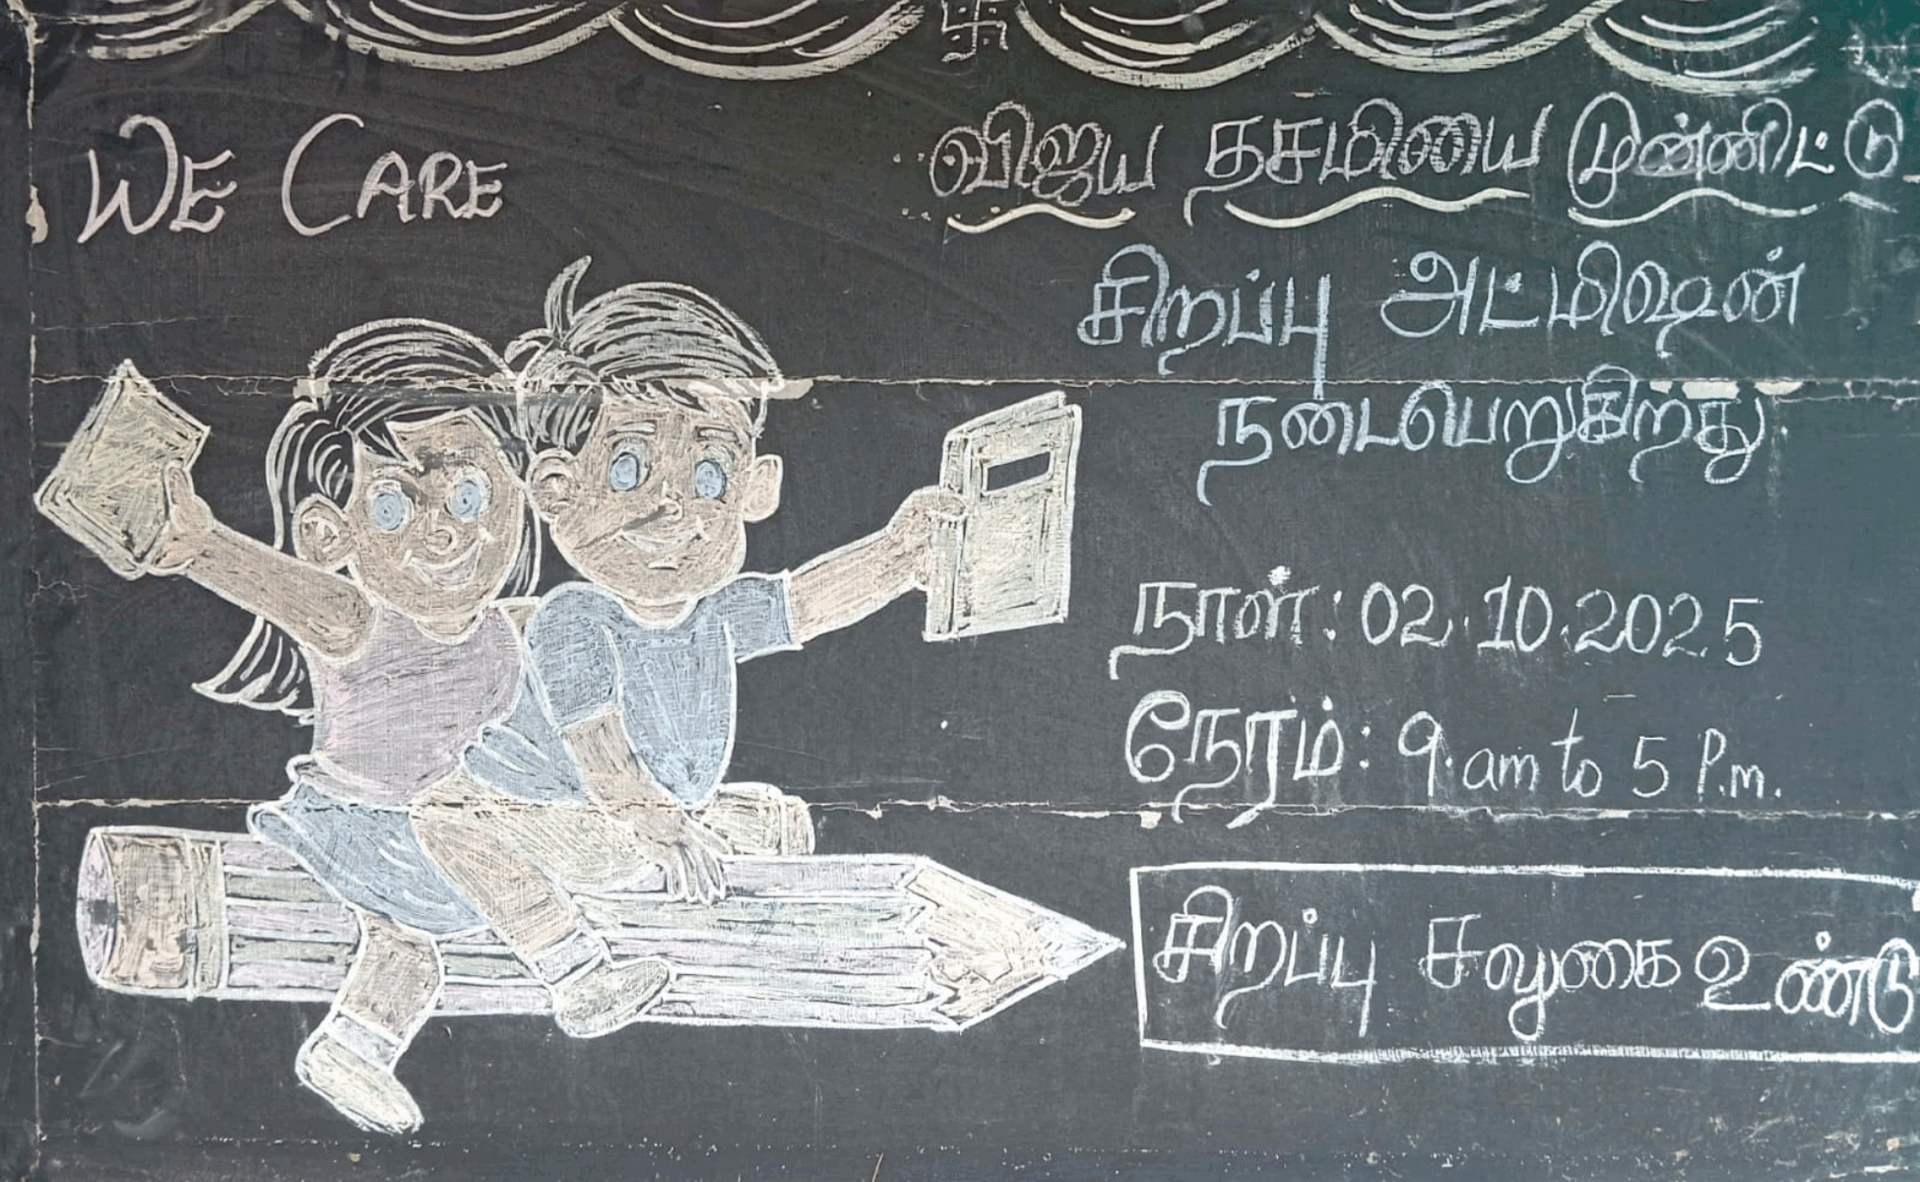 WE CARE
விஜய தசமியை முன்னிட்டு
சிறப்பு அட்மிஷன்
நடைபெறுகிறது
நாள்: 02.10.2025
நேரம்: 9.am to 5 P.m.
சிறப்பு சலுகை உண்டு